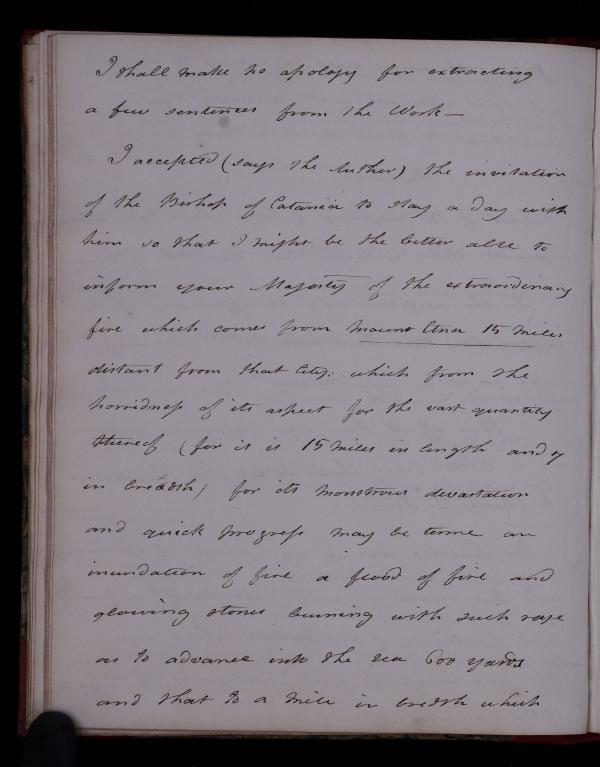 I shall make no apology for extracting
a few sentences from the Work —
I accepted (says the Auther) the invitation
of the Bishop of Catania to stay a day with
him so that I might be the better able to
inform your Majesty of the extraordinary
fire which comes from Mount Etna 15 Miles
distant from that City: which from the
horridness of its aspect for the vast quantity
thereof (for it is 15 Miles in length and 7
in breadth) for its monstrous devastation
and quick progress may be terme an
inundation of fire a flood of fire and
glowing stones burning with such rage
as to advance into the sea 600 yards
and that to a Mile in bredth which